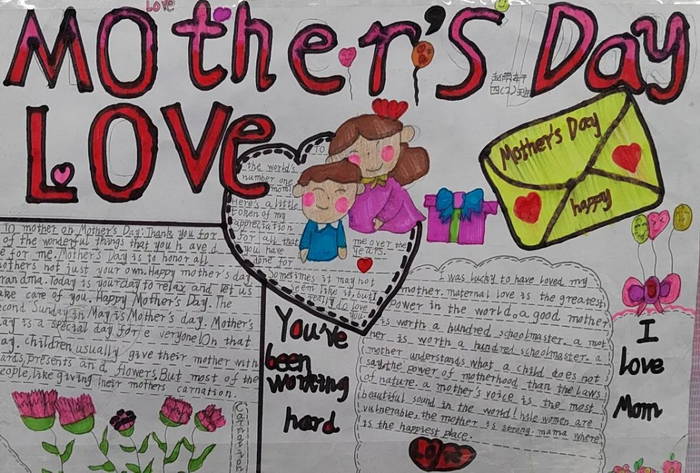 Love
MOther's Day
LOVe
四(2)班
Mother's Day
happy
TO
the world's
number one
mom
Here's a little
token of my
appreciation
for all that
you have
done for
me over the
years.
Sometimes it may not
seem like it, but I
really do love
To mother on Mother's Day: Thank you for
of the wonderful things that you have d
e for me. Mother's Day is to honor all
others not just your own. Happy mother's day
randma. Today is your day to relax and let us
ake care of you. Happy Mother's Day. The
econd Sunday in May is Mother's day. Mother's
day is a special day for e veryone. On that
ay, children usually give their mother with
ards, presents and flowers. But most of the
eople, like giving their mothers carnation.
Carnation
You've
been
working
hard
I was lucky to have loved my
mother. maternal love is the greatest
power in the world. a good mother
is worth a hundred schoolmaster. a mot
her is worth a hundred schoolmaster. a
mother understands what a child does not
say. the power of motherhood than the laws
of nature. a mother's voice is the most
beautiful sound in the world! hsle women are
vulnerable, the mother is strong. mama where
is the happiest place.
Love
I
love
Mom